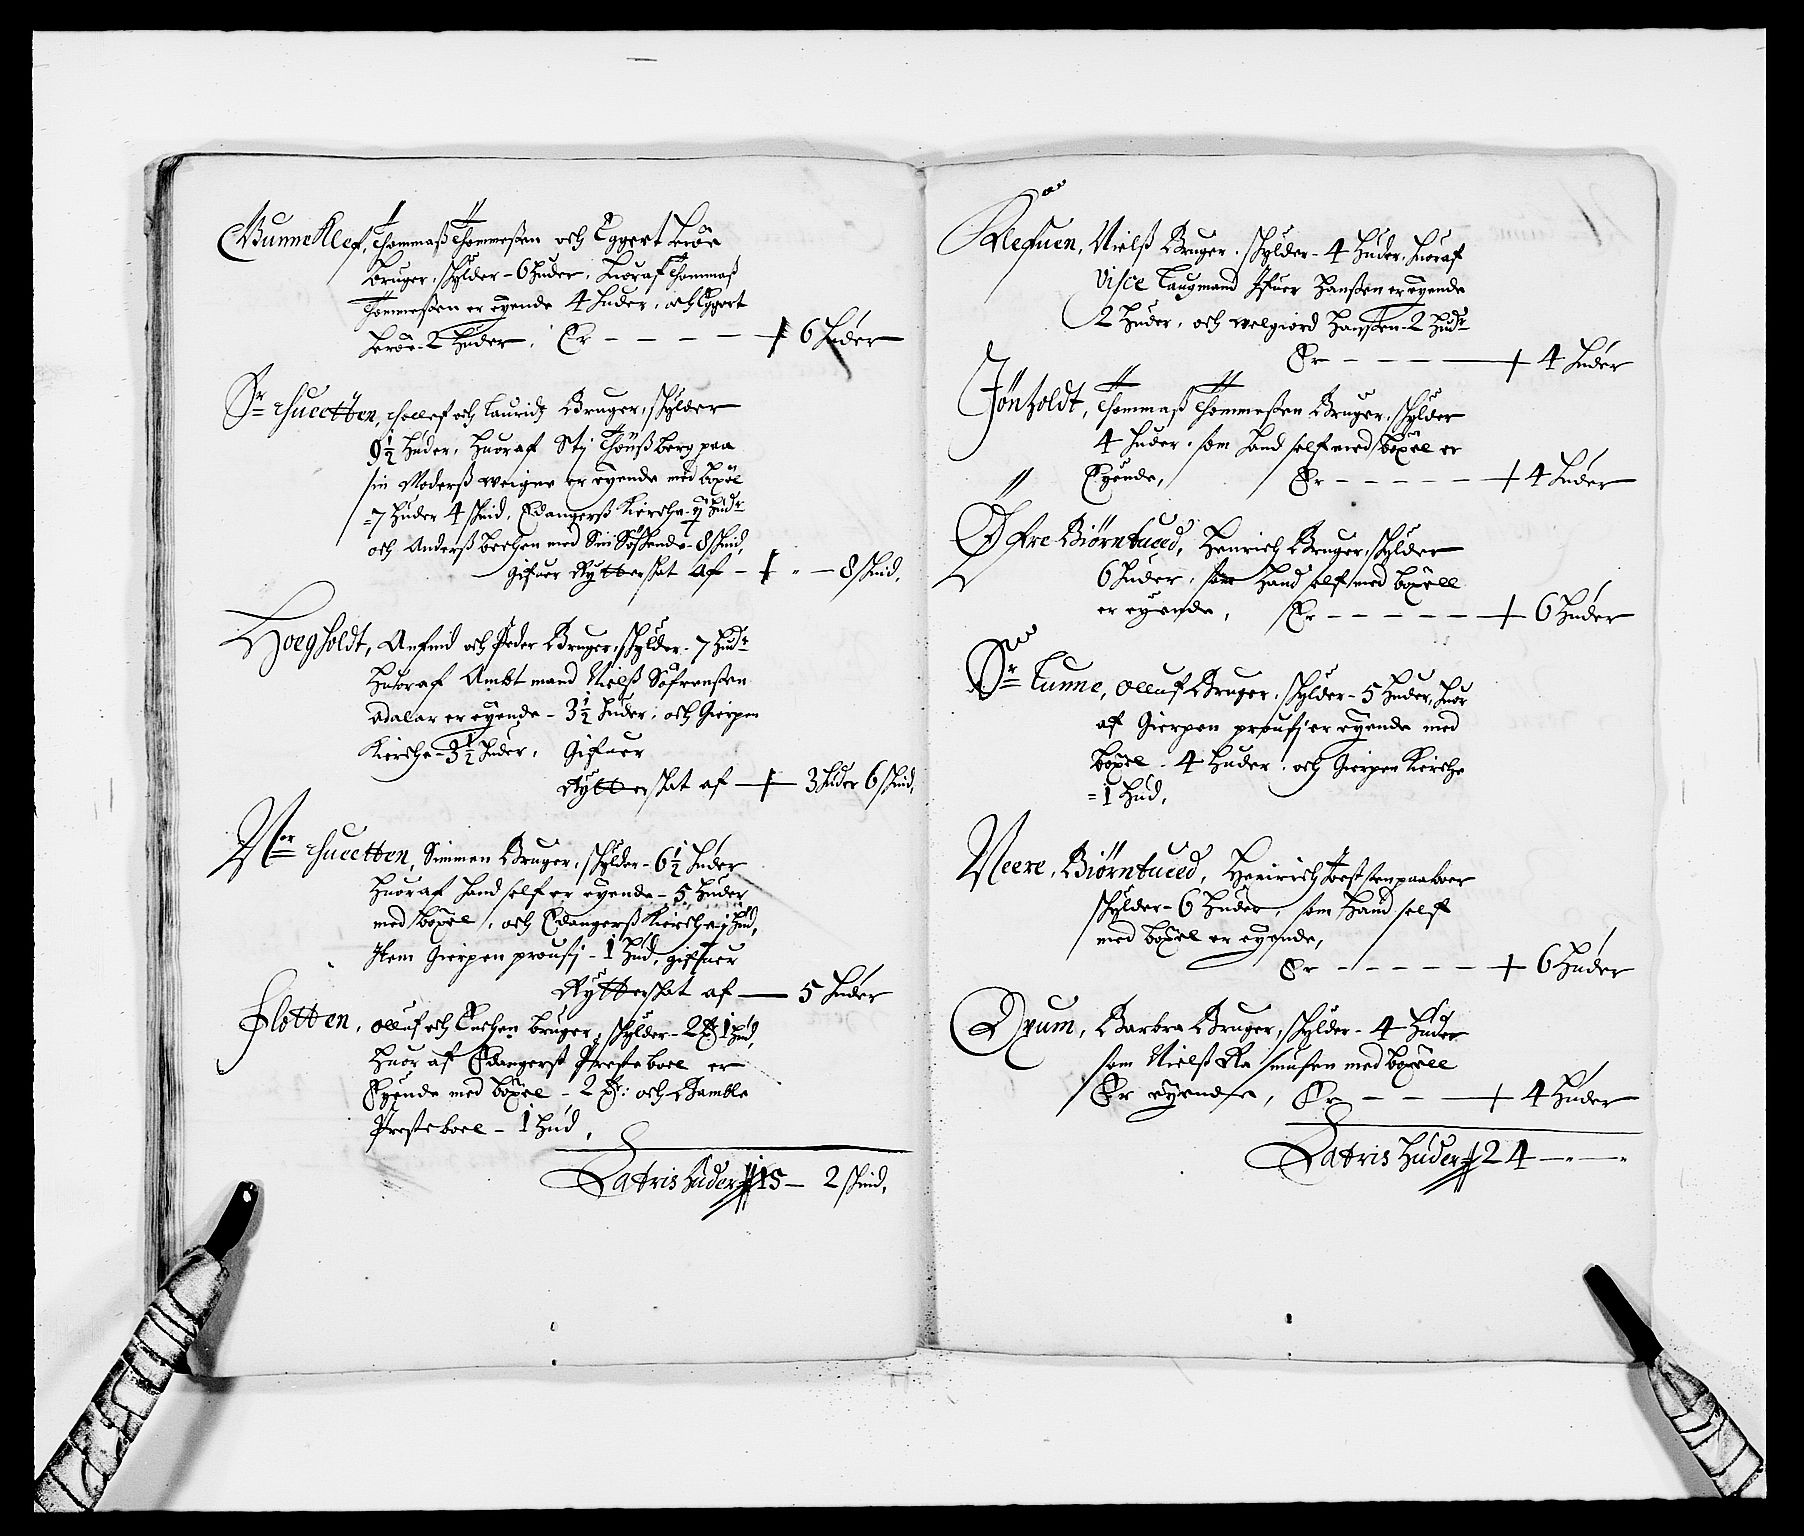 Gunne Klef, Thommaß Thommeßen och Eggert Leröe
Bruger, schylder - 6 Huder, Huoraf Thommaß
Thommeßen er eyende 4 Huder, och Eggert
Leröe - 2 Huder, Er - - - - + 6 Huder
Sr Tuetten, Tollef och Lauridz Bruger, schylder
9½ Huder, Huoraf Sti Thönßberg paa
sin Moderß weigne er eyende med böxel
= 7 Huder 4 skind, Edangerß Kierche - Hudr
och Anderß bechen med Sin Söskende - 8 skind,
Gifuer Rytterskat Af - + " - 8 skind,
Hoegholdt, Anfind och Peder Bruger, schylder - 7 Hudr
Huoraf Ambtmand Nielß Söfrenßen
Adalar er eyende - 3½ Huder, och Gierpen
Kierche - 3½ Huder, Gifuer
Rytterskat af + 3 Huder 6 skind,
Ner Tuetten, Simmen Bruger, schylder - 6½ Huder
Huoraf Hand self er eyende - 5 Huder
med böxel, och Edangerß Kierche ½ Hud,
Item Gierpen proustj - 1 Hud, gifuer
Rytterskat af — 5 Huder
Flotten, Olluf och bruger, schylder - 2 1 Hud,
Huor af Edangerß Presteboel er
Eyende med böxel - 2 : och Bamble
Presteboel - 1 Hud,
Latris Huder 15 - 2 skind,
Klefuen, Nielß Bruger, schylder - 4 Huder, Huoraf
Vice Laugmand Ifuer Hanßen er eyende
2 Huder, och welgiord Hanßen - 2 Hudr
Er - - - - + 4 Huder
Jönholdt, Thommaß Thommeßen Bruger, schylder
4 Huder, som Hand self med böxel er
Eyende, Er - - - - - + 4 Huder
Öfre Biørntued, Henrich Bruger, schylder
6 Huder, som Hand self med boxell
er eyende, Er - - - - - + 6 Huder
Sr Tunne, Olluf Bruger, schylder - 5 Huder, Huor
af Gierpen proustj er eyende med
böxel - 4 Huder, och Gierpen Kierche
= 1 Hud,
Neere, Biørntued, Henrich paaboer
schylder - 6 Huder, som Hand self
med boxel er eyende,
Er - - - - - + 6 Huder
Örum, Barbra Bruger, schylder - 4 Huder
som Nielß Rasmusen med boxell
Er eyende, Er - - - + 4 Huder
Latris Huder 24 — " — "